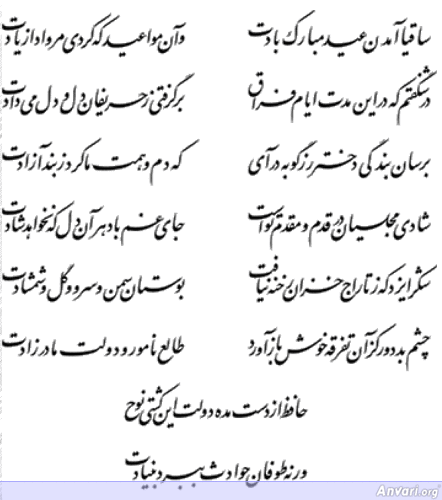 ساقیا آمدن عید مبارک بادت
وان مواعید که کردی مرواد از یادت
در شگفتم که در این مدت ایام فراق
برگرفتی ز حریفان دل و دل می‌دادت
برسان بندگی دختر رز گو به درآی
که دم و همت ما کرد ز بند آزادت
شادی مجلسیان در قدم و مقدم توست
جای غم باد هر آن دل که نخواهد شادت
شکر ایزد که ز تاراج خزان رخنه نیافت
بوستان سمن و سرو و گل و شمشادت
چشم بد دور کز آن تفرقه خوش بازآورد
طالع نامور و دولت مادرزادت
حافظ از دست مده دولت این کشتی نوح
ورنه طوفان حوادث ببرد بنیادت
Anvari.org